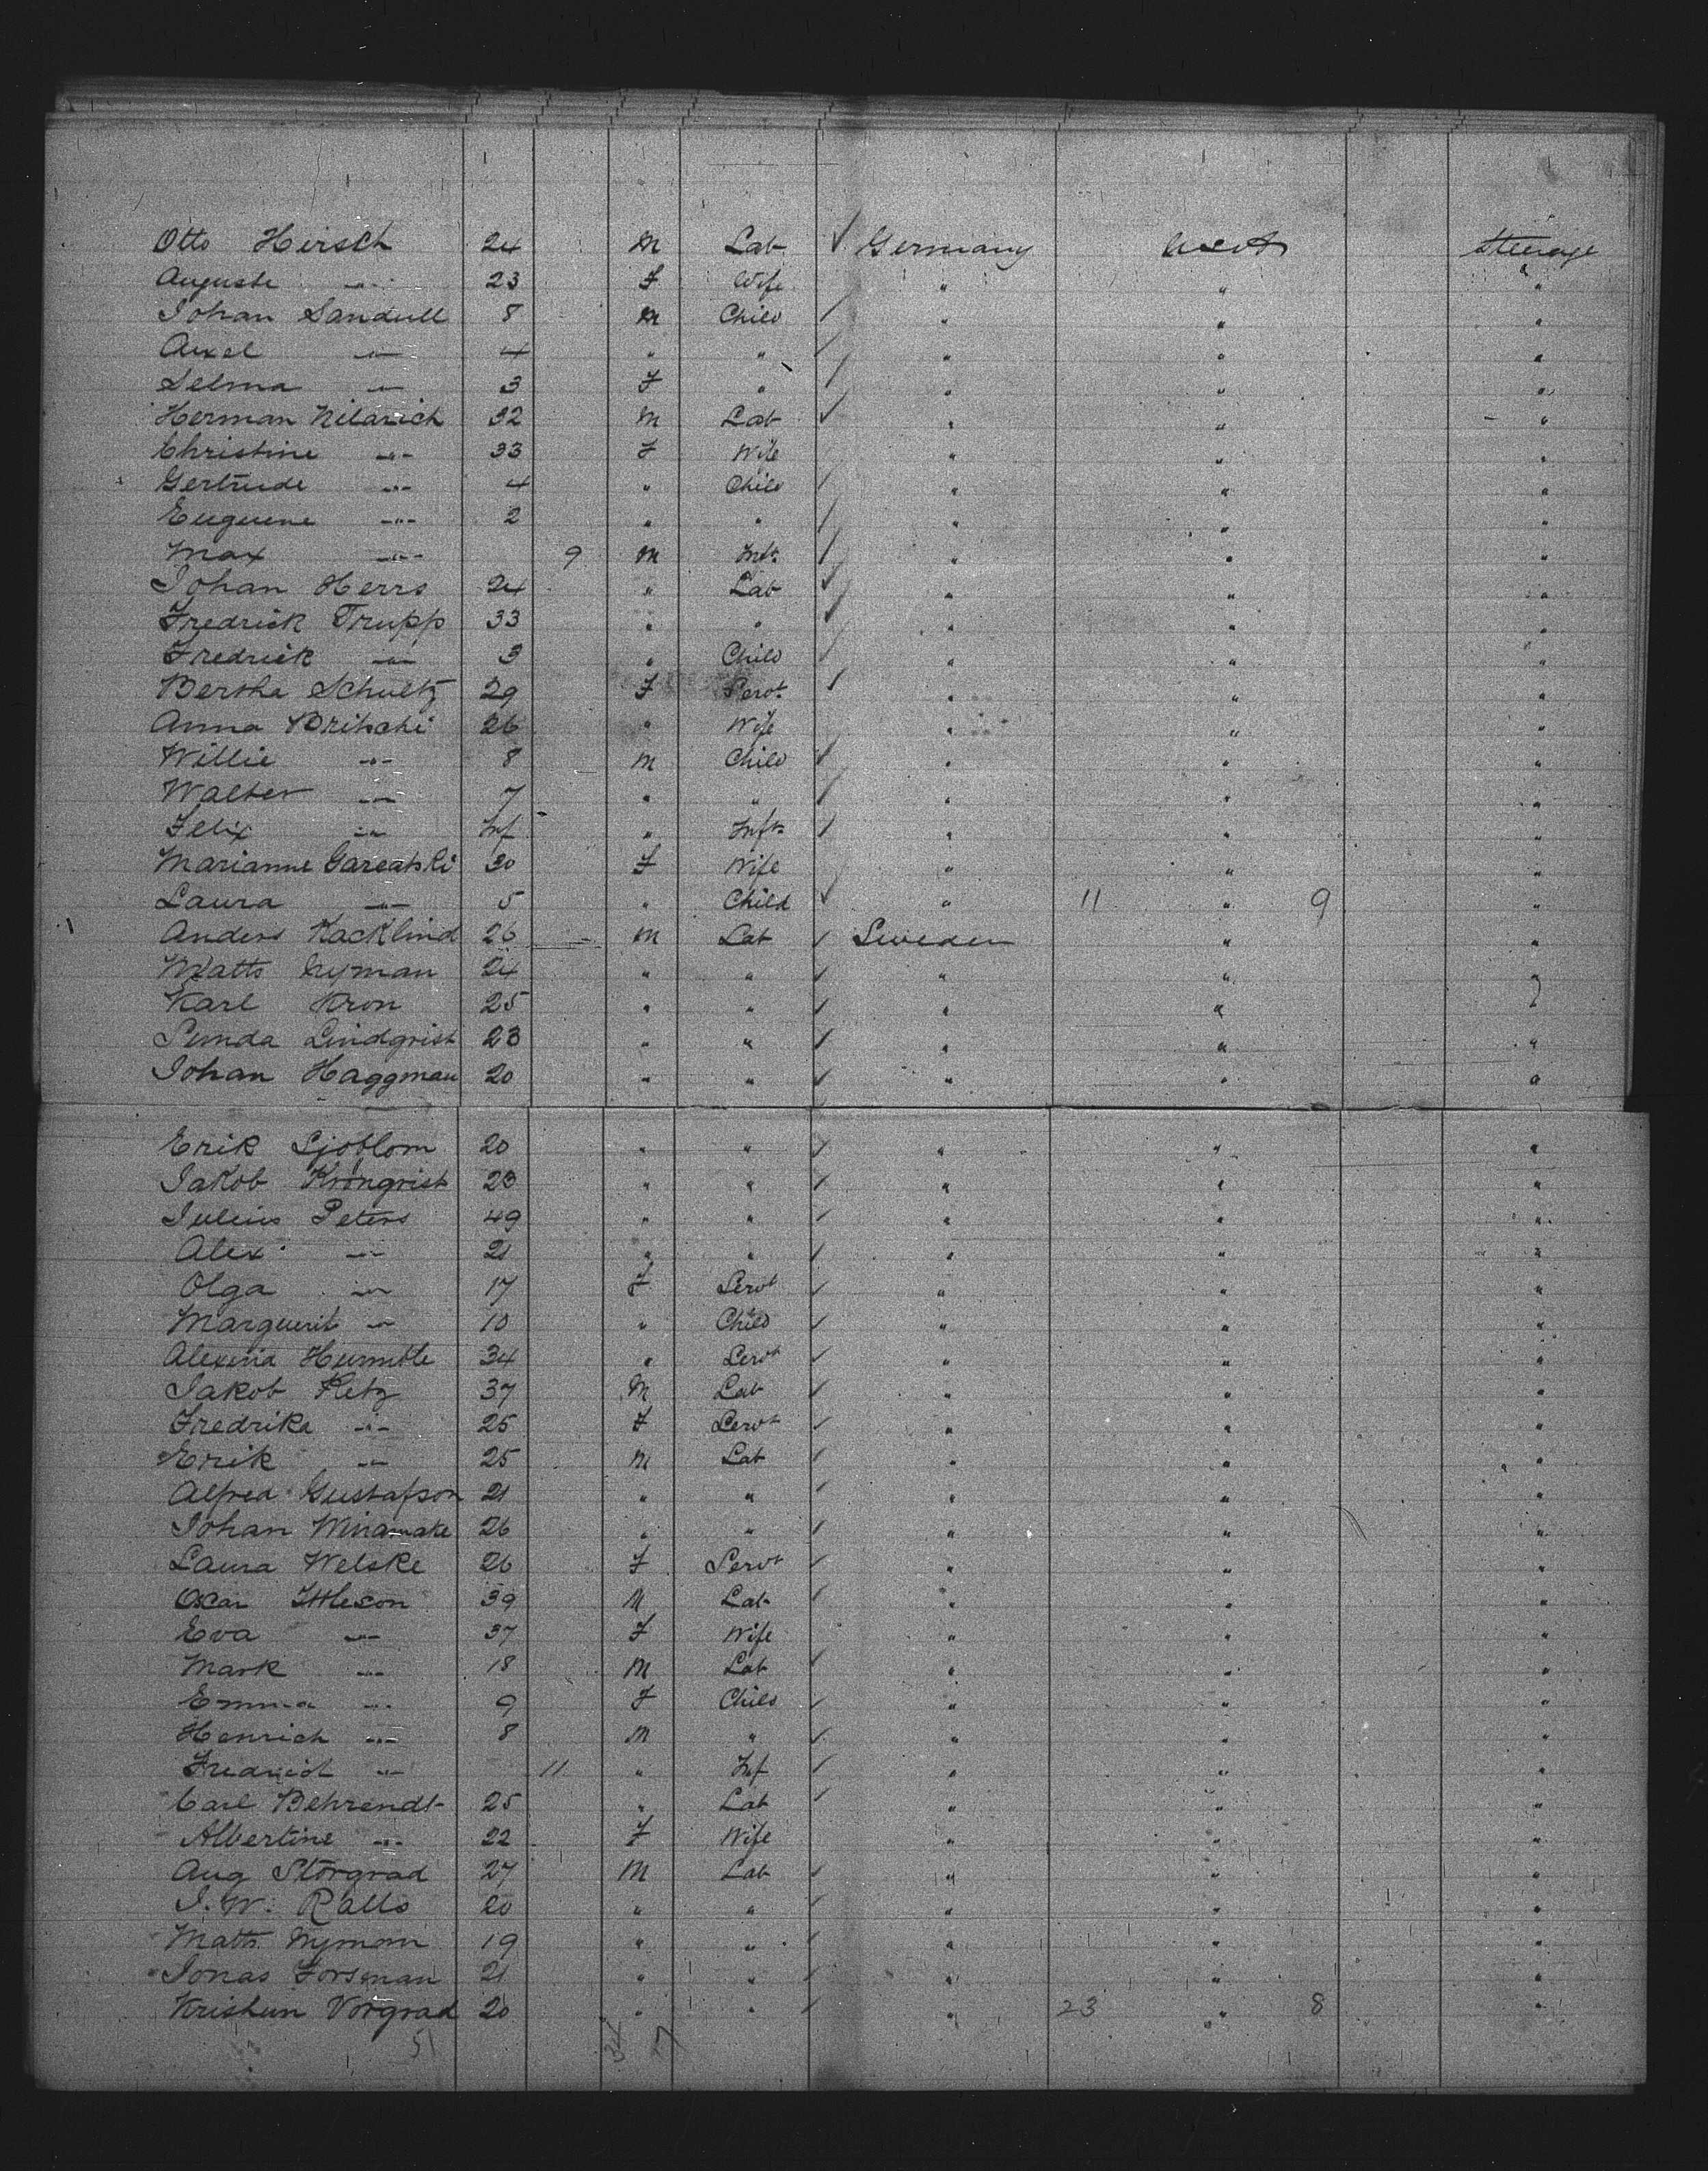 Otto Hirsch 24 M Lab Germany U S A Steerage
Auguste " 23 F Wife " " "
Johan Sandull 8 M Child " " "
Axel " 4 " " " " "
Selma " 3 F " " " "
Herman Nilarich 32 M Lab " " "
Christine " 33 F Wife " " "
Gertrude " 4 " Child " " "
Euguene " 2 " " " " "
Max " 9 M Inft " " "
Johan Herrs 24 " Lab " " "
Fredrick Trupp 33 " " " " "
Fredrick " 3 " Child " " "
Bertha Schultz 29 F Servt " " "
Anna Britschi 26 " Wife " " "
Willie " 8 M Child " " "
Walter " 7 " " " " "
Felix " Inf " Inft " " "
Marianne Gareatski 30 F Wife " " "
Laura " 5 " Child " 11 " 9 "
Anders Kacklind 26 M Lab Sweden " "
Matts Nyman 24 " " " " "
Karl Kron 25 " " " " "
Lindqrist 23 " " " " "
Johan Haggman 20 " " " " "
Erik Sjoblom 20 " " " " "
Jakob Kronqrist 23 " " " " "
Julius Peters 49 " " " " "
Alex " 21 " " " " "
Olga " 17 F Servt " " "
Marguerit " 10 " Child " " "
Alexina Humble 34 " Servt " " "
Jakob Ketz 37 M Lab " " "
Fredrika " 25 F Servt " " "
Erik " 25 M Lab " " "
Alfred Gustafson 21 " " " " "
Johan Winamake 26 " " " " "
Laura Welske 26 F Servt " " "
Oscar Ittleson 39 M Lab " " "
Eva " 37 F Wife " " "
Mark " 18 M Lab " " "
Emma " 9 F Child " " "
Henrich " 8 M " " " "
Fredrich " 11 " Inf " " "
Carl Behrendt 25 " Lab " " "
Albertine " 22 F Wife " " "
Aug Storgrad 27 M Lab " " "
J. W. Ralls 20 " " " " "
Matts Nyman 19 " " " " "
Jonas Forsman 21 " " " " "
Krishun Vorgrad 20 " " " 23 " 8 "
51 34 17